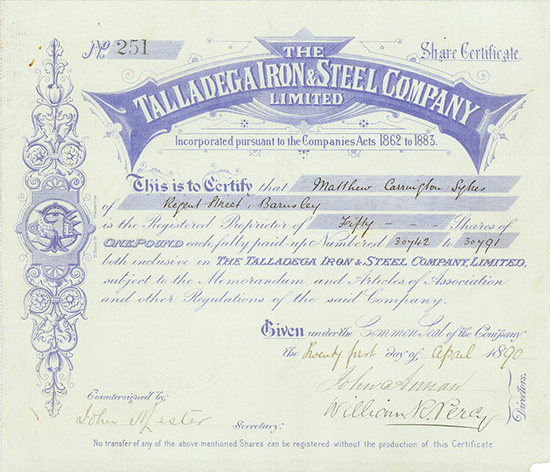 No 251
Share Certificate
THE
TALLADEGA IRON & STEEL COMPANY
LIMITED
Incorporated pursuant to the Companies Acts 1862 to 1883.
This is to Certify that Matthew Carrington Sykes
of Regent Street, Barnsley
is the Registered Proprietor of Fifty - - - Shares of
ONE POUND each, fully paid up Numbered 30742 to 30791
both inclusive in THE TALLADEGA IRON & STEEL COMPANY, LIMITED,
subject to the Memorandum and Articles of Association
and other Regulations of the said Company.
Given under the Common Seal of the Company
the Twenty first day of April 1890
John Lester
William R. Percy
Directors.
Countersigned by:
Secretary.
No transfer of any of the above-mentioned Shares can be registered without the production of this Certificate